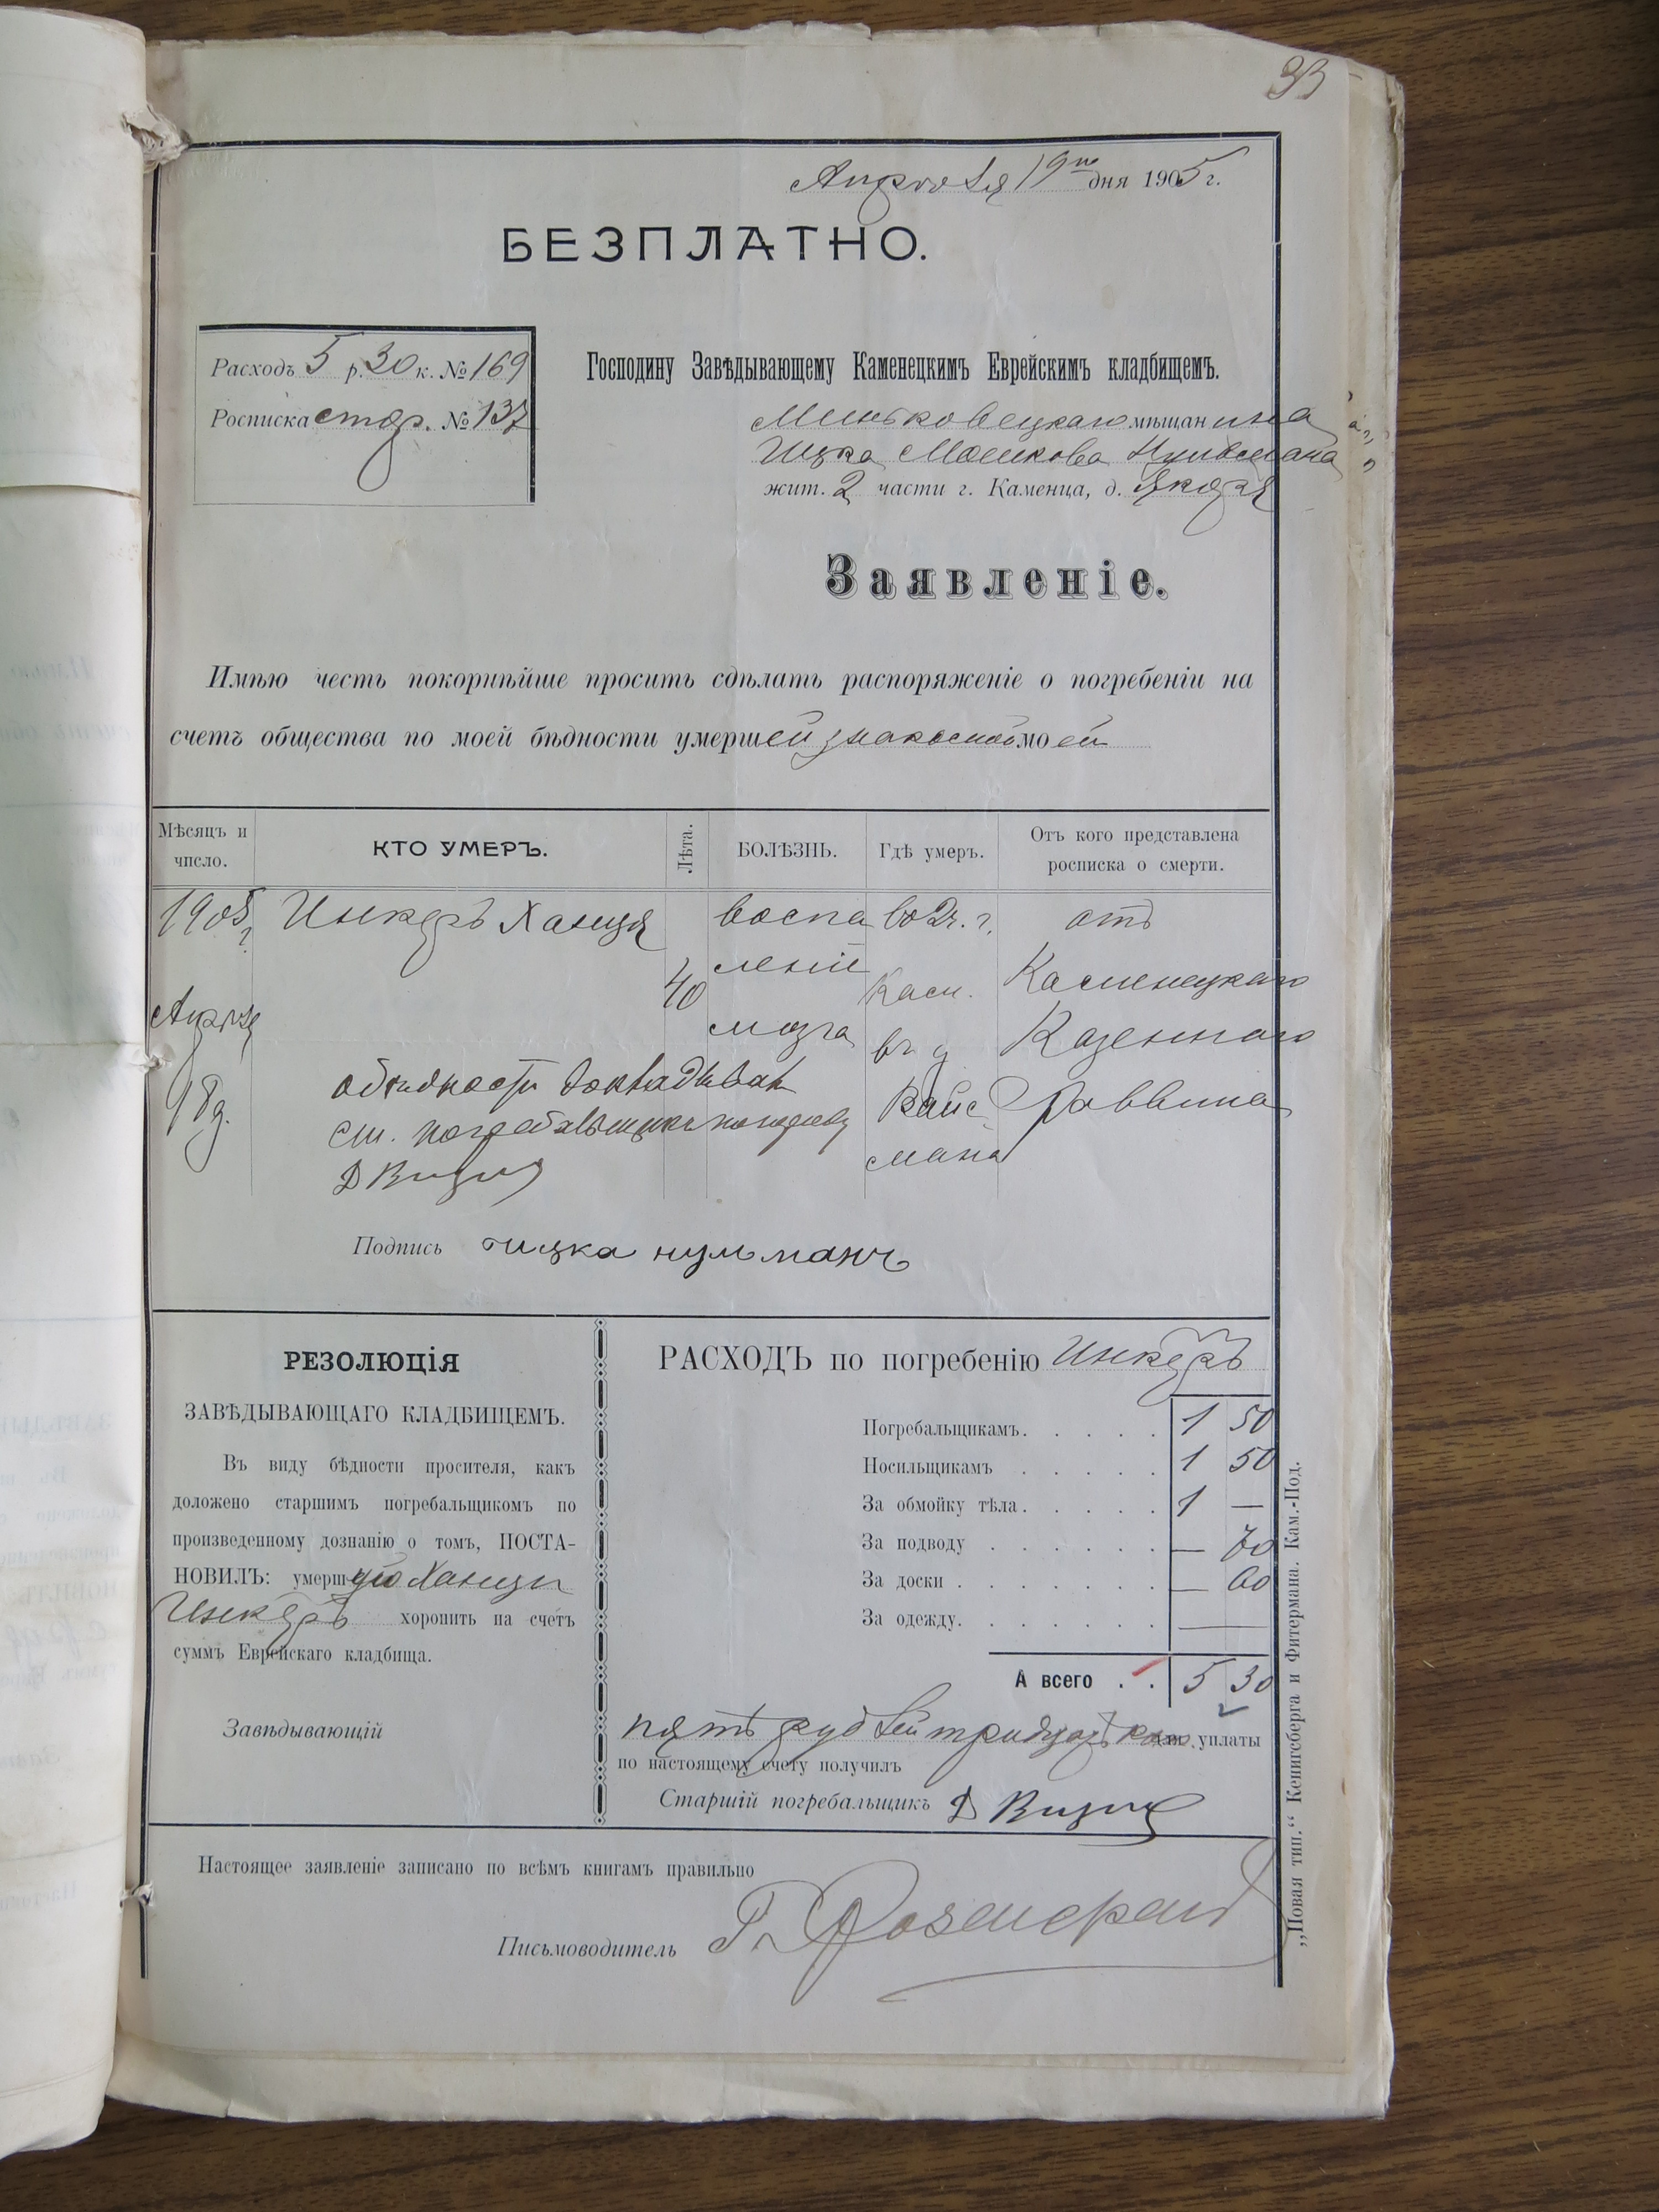 33
Апрѣля 19го дня 1905 г.
БЕЗПЛАТНО.
Расходъ 5 р. 30 к. № 169
Росписка стар. № 137
Господину Завѣдывающему Каменецкимъ Еврейскимъ кладбищемъ.
Миньковецкаго мѣщанина
Ицка Мошкова
жит. 2 части г. Каменца, д.
Заявленіе.
Имѣю честь покорнѣйше просить сдѣлать распоряженіе о погребеніи на
счетъ общества по моей бѣдности умершей знакомой моей
Мѣсяцъ и число.
КТО УМЕРЪ.
Лѣта.
БОЛѢЗНЬ.
Гдѣ умеръ.
Отъ кого представлена росписка о смерти.
1905 г. Инкеръ Ханця воспа во 2ч. г. отъ
40 леніе Кам. Каменецкаго
Апрѣля мозга въ д. Казеннаго
18 д. Вайс Раввина
мана
о бѣдности докладывалъ
ст. погребальщикъ
Д Визин
Подпись ицка нульманъ
РЕЗОЛЮЦІЯ
ЗАВѢДЫВАЮЩАГО КЛАДБИЩЕМЪ.
Въ виду бѣдности просителя, какъ
доложено старшимъ погребальщикомъ по
произведенному дознанію о томъ, ПОСТА-
НОВИЛЪ: умершую Ханци
Инкеръ хоронить на счетъ
суммъ Еврейскаго кладбища.
Завѣдывающій
РАСХОДЪ по погребенію Инкеръ
Погребальщикамъ. 1 50
Носильщикамъ 1 50
За обмойку тѣла. 1 —
За подводу — 70
За доски — 60
За одежду. —
А всего 5 30
пять рублей тридцать коп. уплаты
по настоящему счету получилъ
Старшій погребальщикъ Д Визин
Настоящее заявленіе записано по всѣмъ книгамъ правильно
Письмоводитель
„Новая тип.“ Кенигсберга и Фитермана. Кам.-Под.